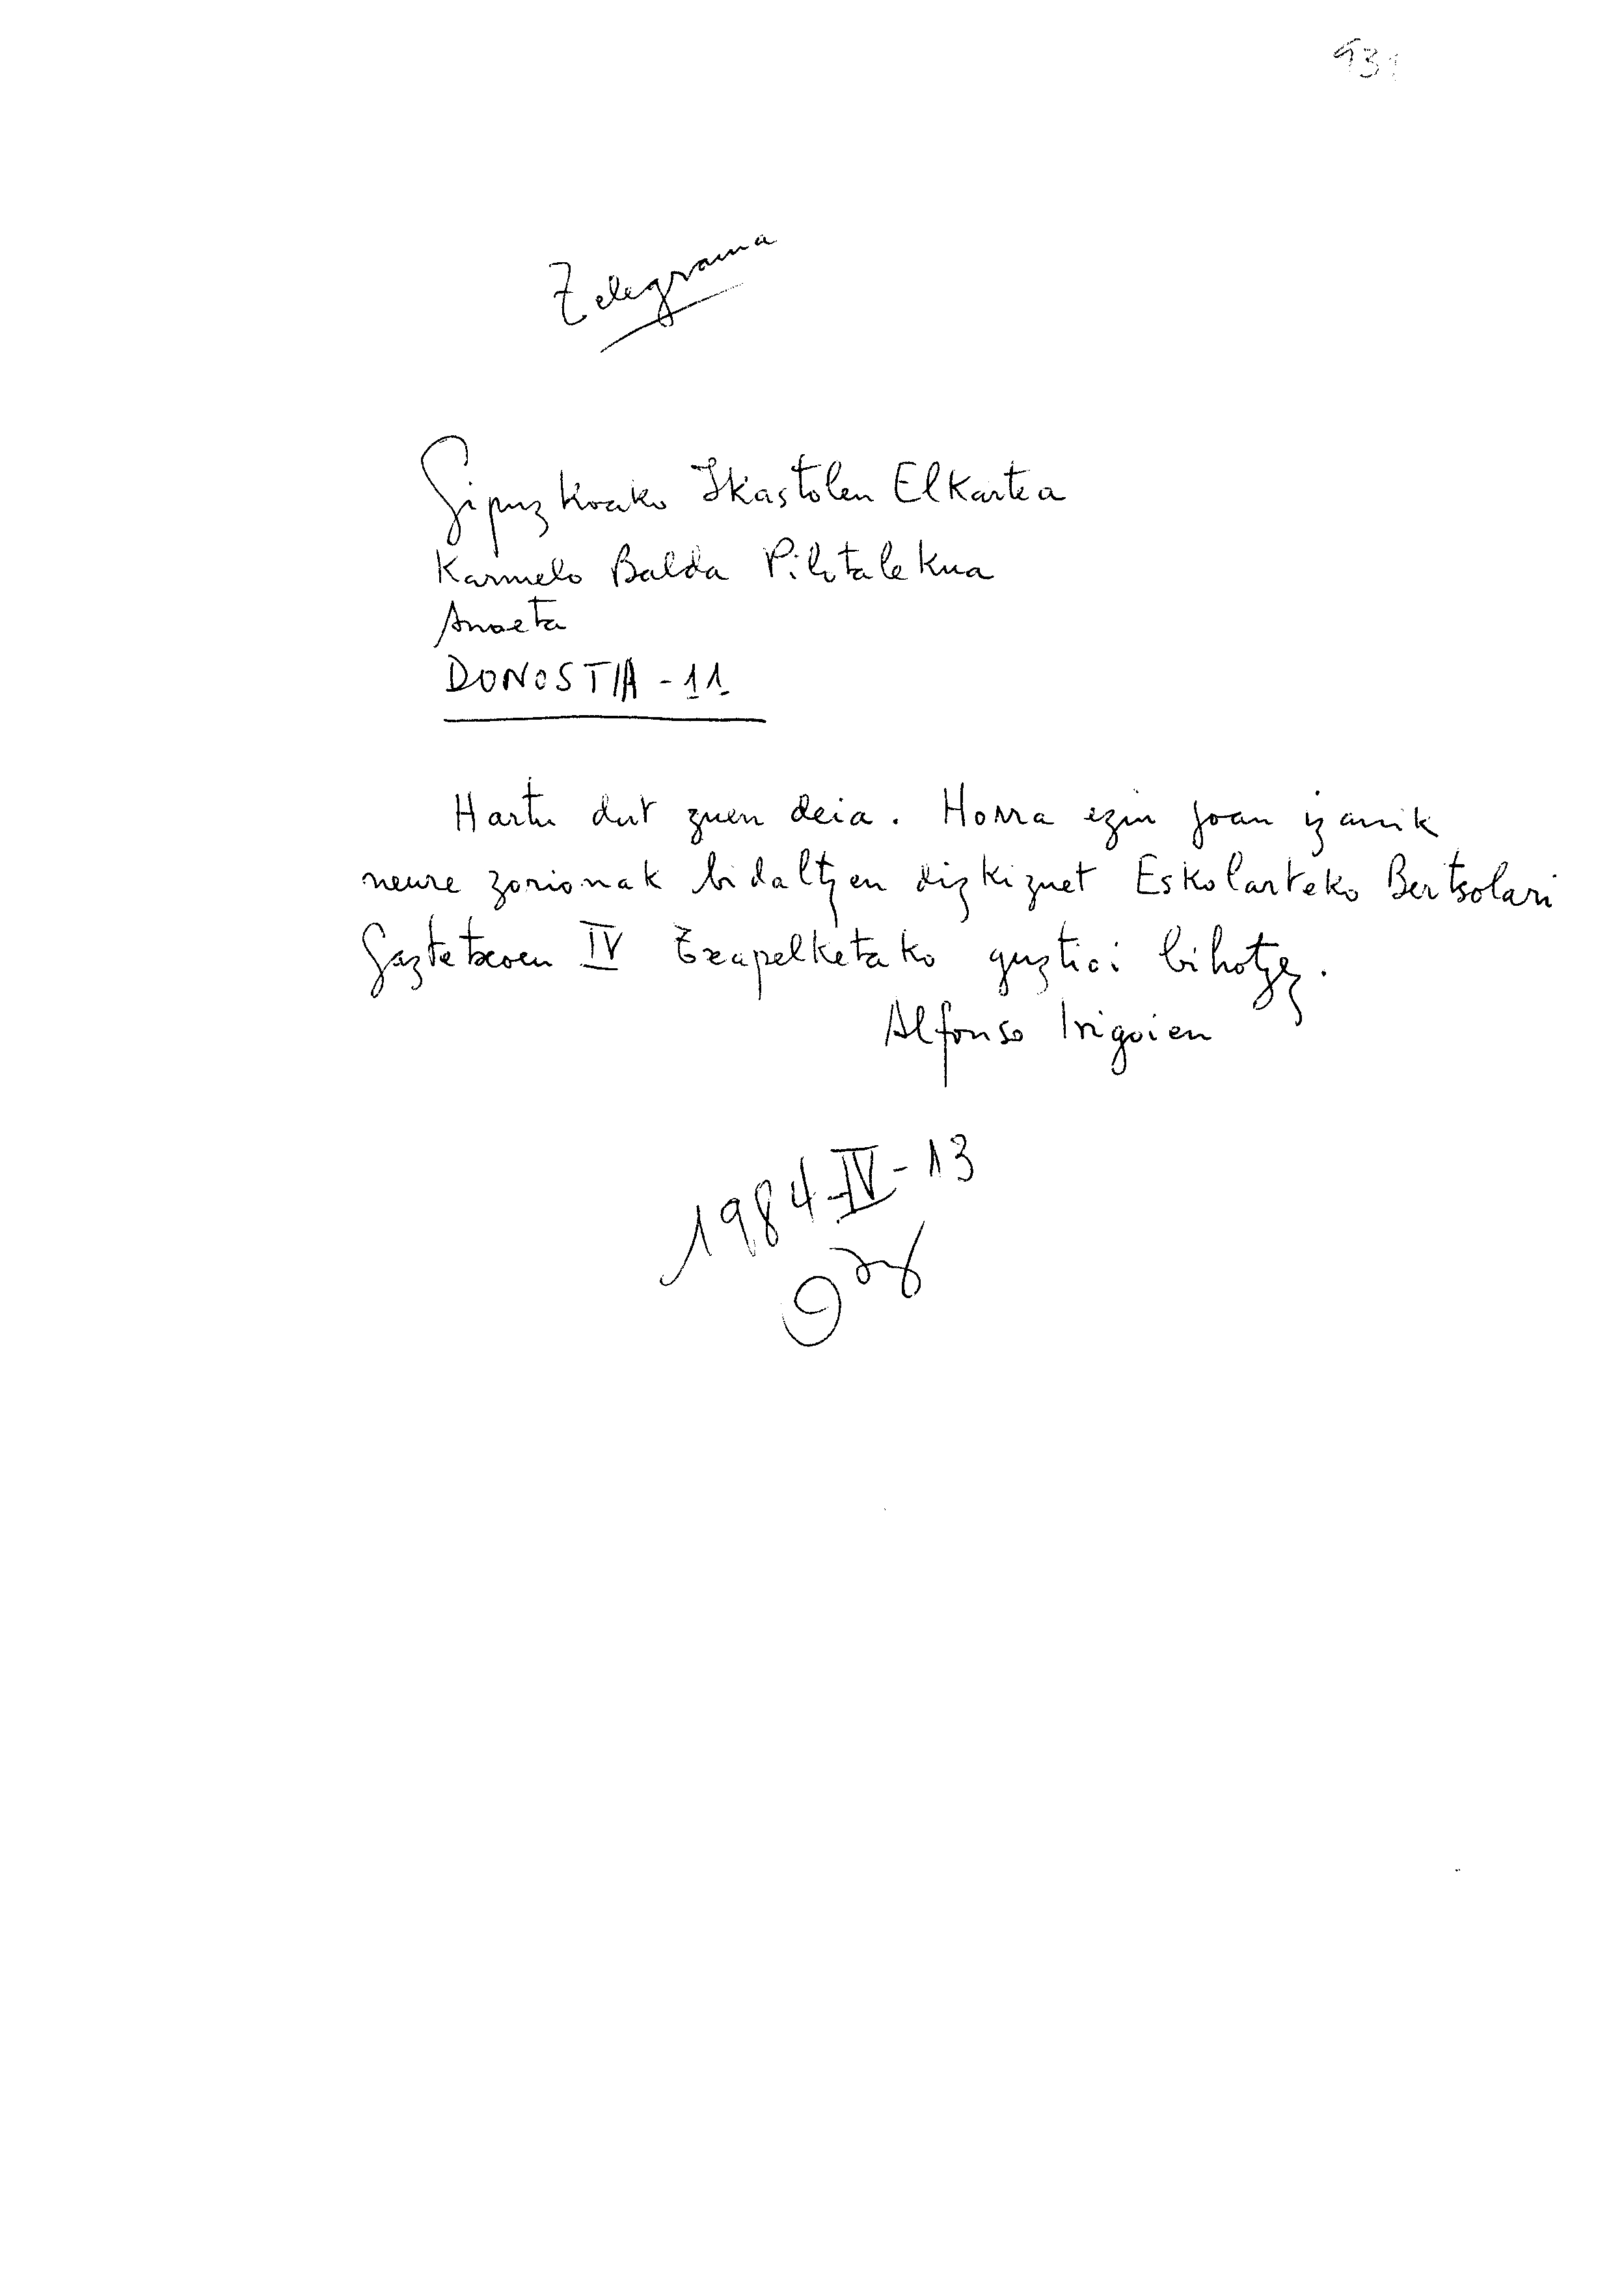 931
Telegrama
Gipuzkoako Ikastolen Elkartea
Karmelo Balda Pilotalekua
Anoeta
DONOSTIA - 11
Hartu dut zuen deia. Horra ezin joan izanik
neure zorionak bidaltzen dizkizuet Eskolarteko Bertsolari
Gaztetxoen IV Txapelketako guztioi bihotzez.
Alfonso Irigoien
1984-IV-13